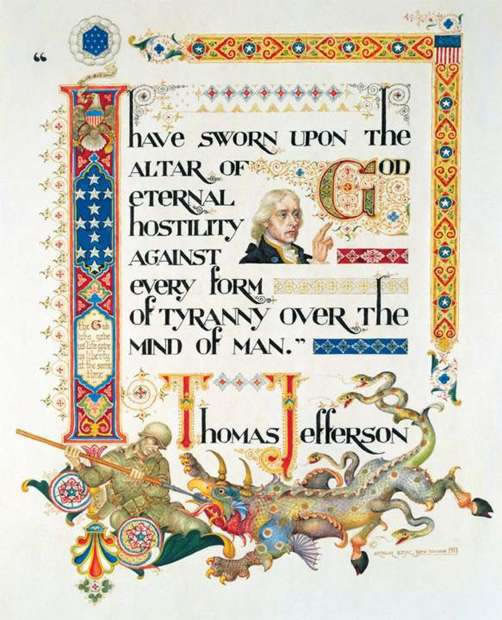 “
I have SWORN UPON The
ALTAR OF GOD
eTERNAL
hOSTILITY
AGAINST
eveRy foRM
of TYRANNY OVER The
MIND OF MAN.”
The God
who gave
us life gave
us liberty
at the same
time
Thomas Jefferson
ARTHUR SZYK, NEW CANAAN 1951